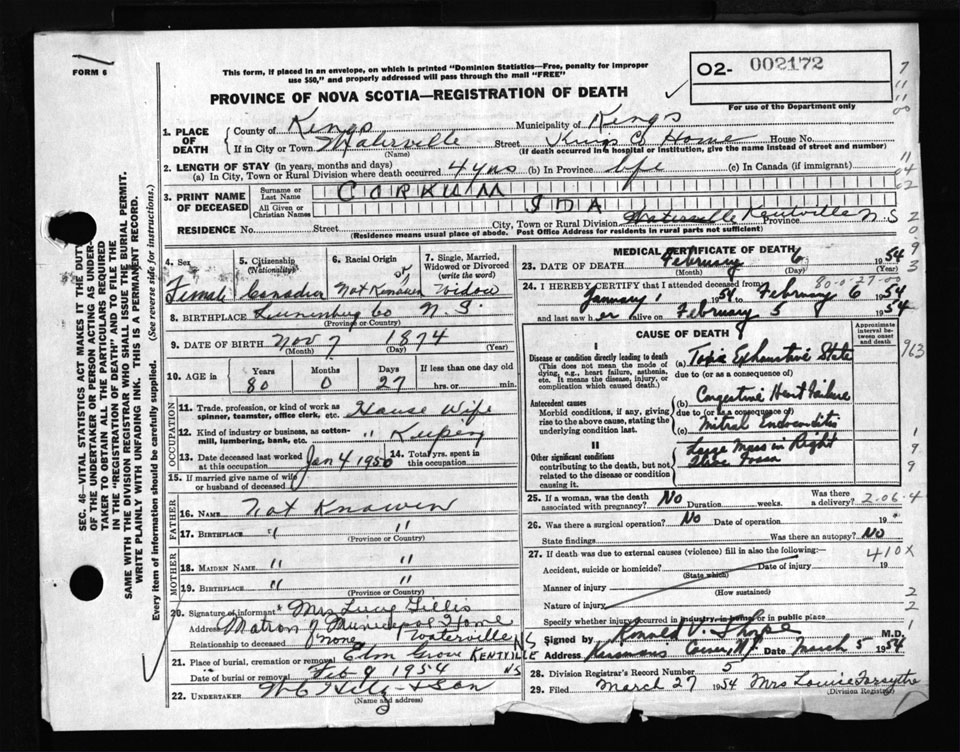 FORM 6
This form, if placed in an envelope, on which is printed "Dominion Statistics—Free, penalty for improper
use $50," and properly addressed will pass through the mail "FREE"
02- 002172
For use of the Department only
PROVINCE OF NOVA SCOTIA—REGISTRATION OF DEATH
1. PLACE OF DEATH
County of Kings Municipality of Kings
If in City or Town Waterville Street Kings Co Home House No.
(Name) (If death occurred in a hospital or institution, give the name instead of street and number)
2. LENGTH OF STAY (in years, months and days)
(a) In City, Town or Rural Division where death occurred 4 yrs (b) In Province life (c) In Canada (if immigrant)
3. PRINT NAME OF DECEASED
Surname or Last Name CORKUM
All Given or Christian Names IDA
RESIDENCE No. Street City, Town or Rural Division Waterville Kentville Province N.S
(Residence means usual place of abode. Post Office Address for residents in rural parts not sufficient)
4. Sex
Female
5. Citizenship
(Nationality)
Canadian
6. Racial Origin
Not Known
7. Single, Married,
Widowed or Divorced
(write the word)
Widow
8. BIRTHPLACE Lunenburg Co N.S.
(Province or Country)
9. DATE OF BIRTH Nov 7 1874
(Month) (Day) (Year)
10. AGE in Years Months Days If less than one day old
80 0 27 hrs. or min.
OCCUPATION
11. Trade, profession, or kind of work as
spinner, teamster, office clerk, etc. House Wife
12. Kind of industry or business, as cotton-
mill, lumbering, bank, etc. " Keeper
13. Date deceased last worked
at this occupation Jan 4 1950
14. Total yrs. spent in
this occupation
15. If married give name of wife
or husband of deceased
FATHER
16. NAME Not Known
17. BIRTHPLACE " "
(Province or Country)
MOTHER
18. MAIDEN NAME " "
19. BIRTHPLACE " "
(Province or Country)
20. Signature of informant Mrs Lucy Gillis
Address Matron of Municipal Home
Relationship to deceased none Waterville NS
21. Place of burial, cremation or removal Elm Grove KENTVILLE
Date of burial or removal Feb 9 1954 NS
22. UNDERTAKER & Son
(Name and address)
MEDICAL CERTIFICATE OF DEATH
23. DATE OF DEATH February 6 1954
(Month) (Day) (Year)
24. I HEREBY CERTIFY that I attended deceased from
January 1 1954 to February 6 1954
and last saw her alive on February 5 1954
CAUSE OF DEATH
Approximate
interval between
onset and death
I
Disease or condition directly leading to death
(This does not mean the mode of
dying, e.g., heart failure, asthenia,
etc. It means the disease, injury, or
complication which caused death.)
(a) Toxic Exhaustive State
due to (or as a consequence of)
Antecedent causes
Morbid conditions, if any, giving
rise to the above cause, stating the
underlying condition last.
(b) Congestive Heart Failure
due to (or as a consequence of)
(c) Mitral Endocarditis
II
Other significant conditions
contributing to the death, but not
related to the disease or condition
causing it.
Large Mass in Right
Iliac Fossa
25. If a woman, was the death
associated with pregnancy? No Duration weeks. Was there
a delivery?
2.06.4
26. Was there a surgical operation? No Date of operation 19
State findings Was there an autopsy? No
27. If death was due to external causes (violence) fill in also the following:—
410X
Accident, suicide or homicide? Date of injury 19
(State which)
Manner of injury
Nature of injury
Specify whether injury occurred in industry, in home, or in public place
Signed by Ronald V. M.D.
Address Date March 5 1954
28. Division Registrar's Record Number 5
29. Filed March 27 1954 Mrs Louise Forsythe
(Division Registrar)
SEC. 46—VITAL STATISTICS ACT MAKES IT THE DUTY
OF THE UNDERTAKER OR PERSON ACTING AS UNDER-
TAKER TO OBTAIN ALL THE PARTICULARS REQUIRED
IN THE "REGISTRATION OF DEATH" AND TO FILE THE
SAME WITH THE DIVISION REGISTRAR WHO SHALL ISSUE THE BURIAL PERMIT.
WRITE PLAINLY WITH UNFADING INK. THIS IS A PERMANENT RECORD.
Every item of information should be carefully supplied. (See reverse side for instructions.)